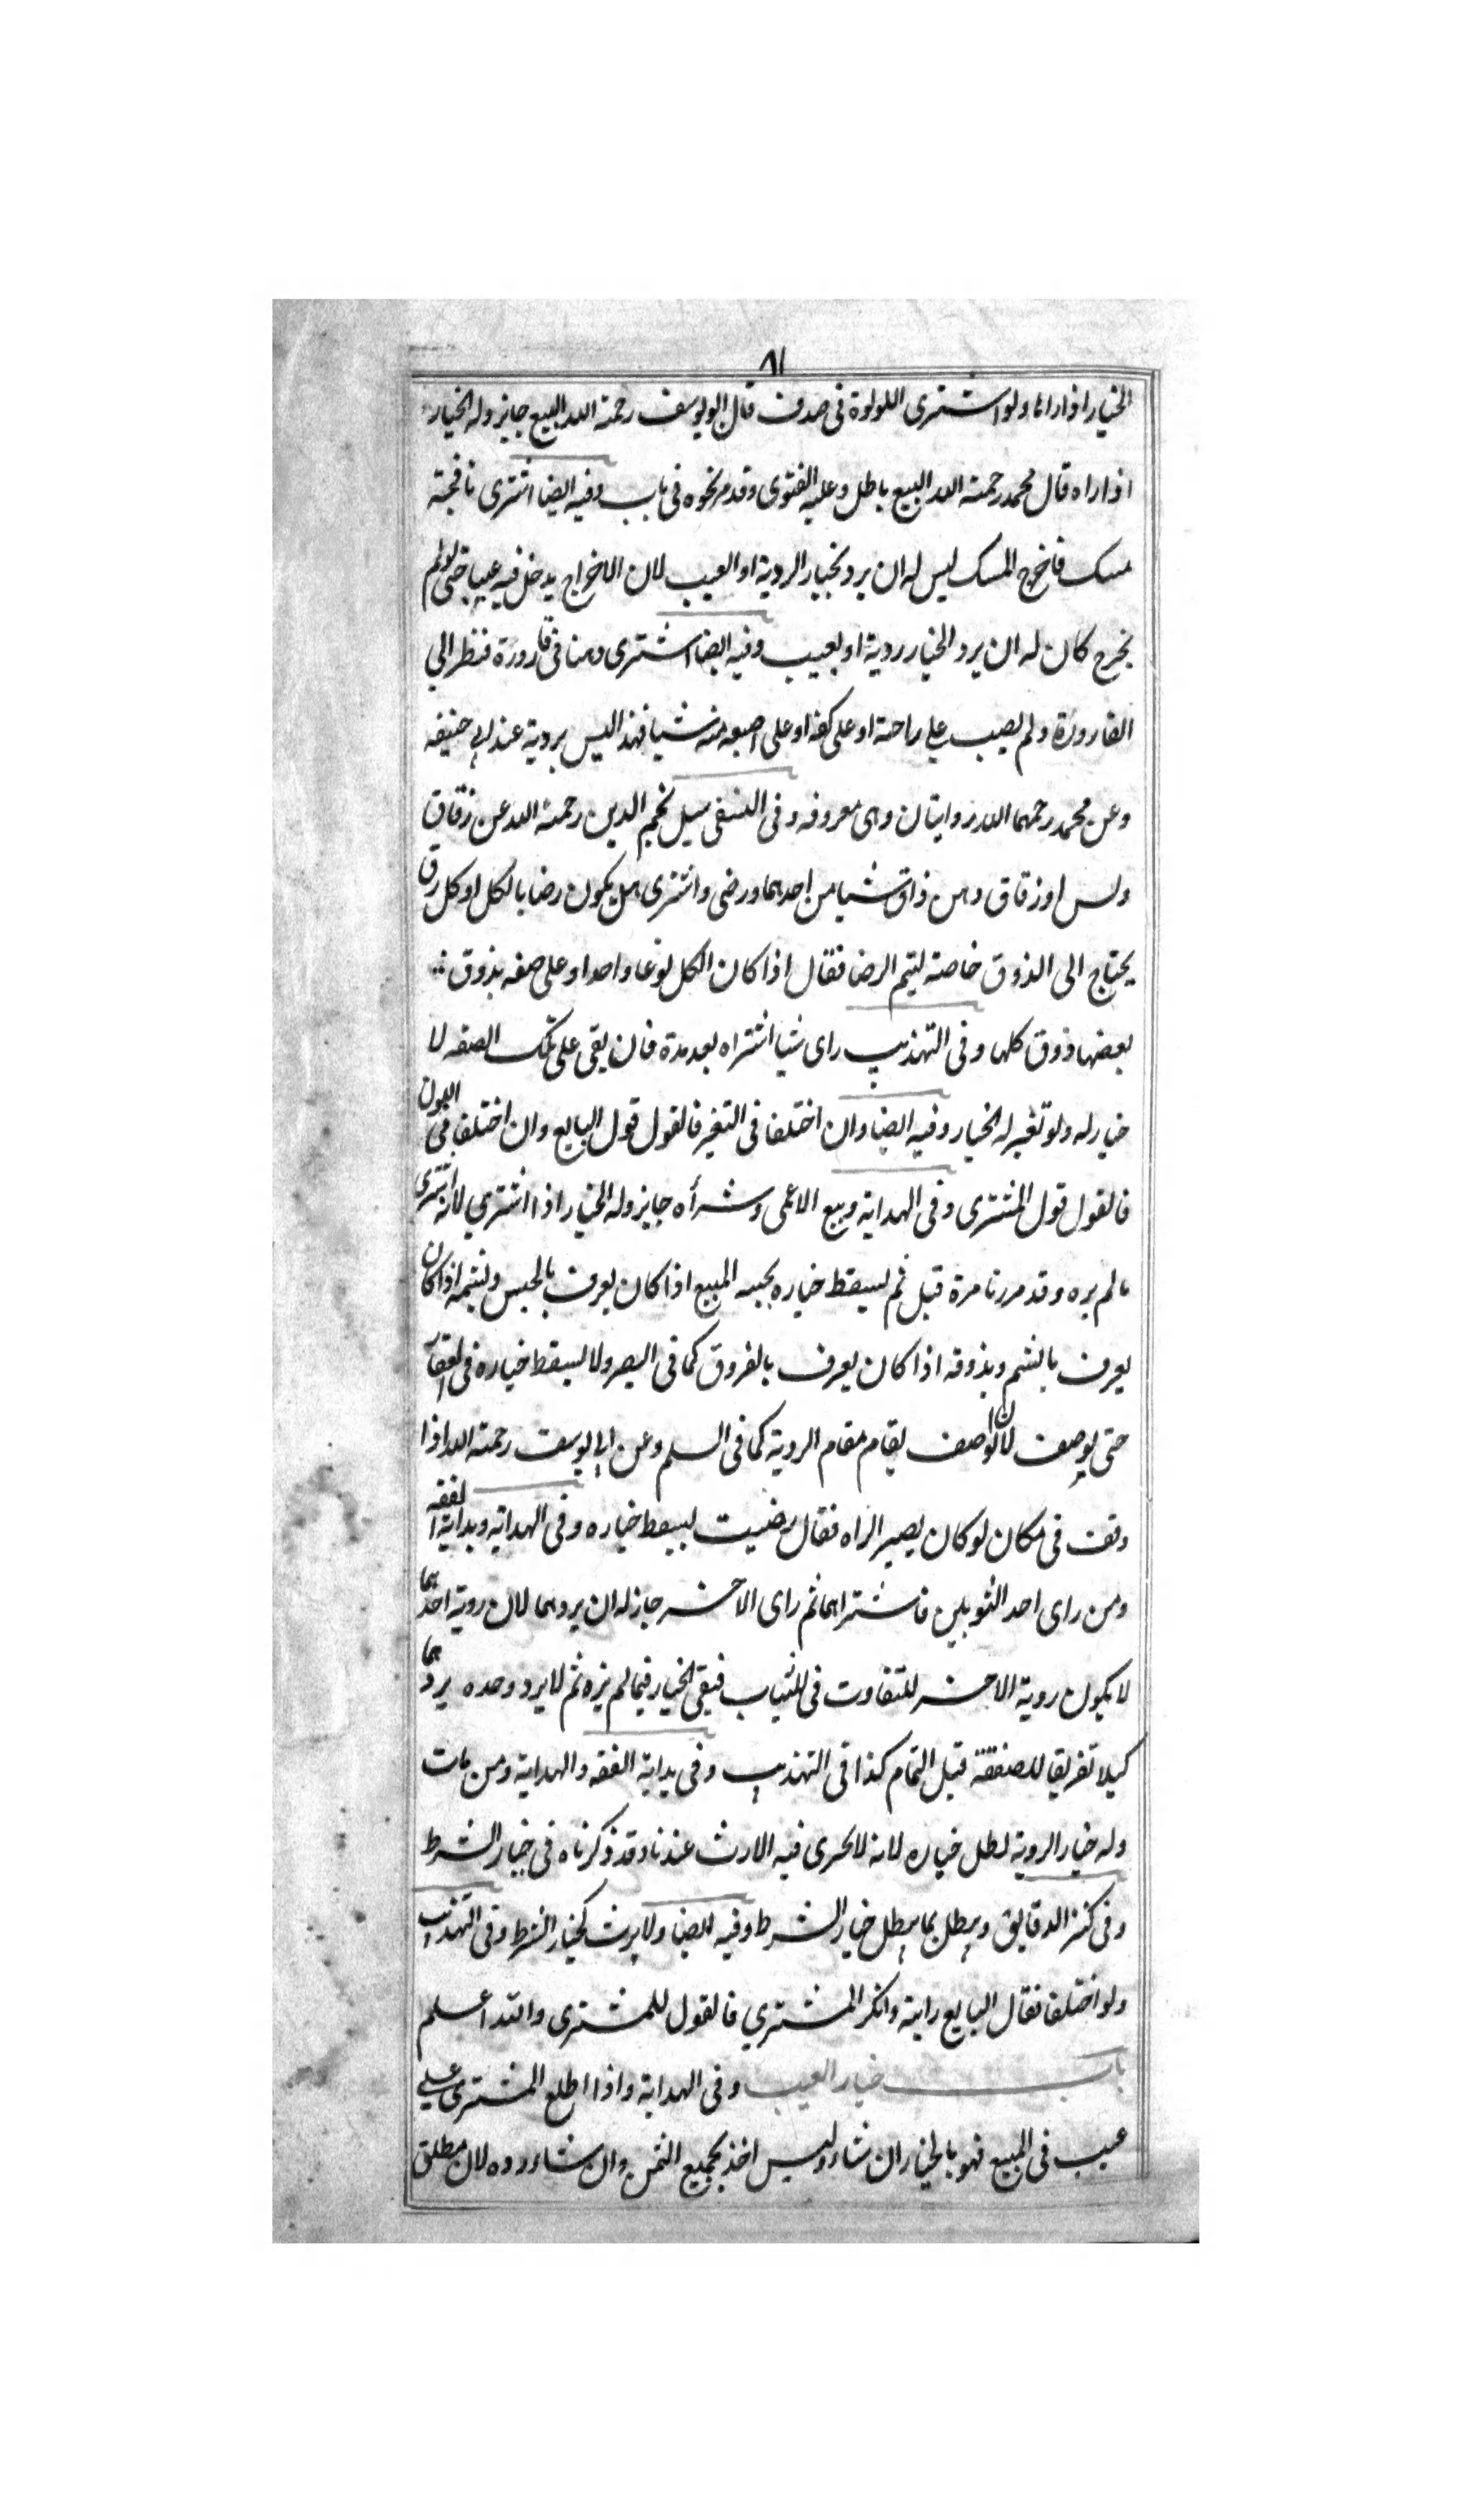 ٨١
الخيار اذا راها ولو اشترى اللولوة فى صدف قال ابو يوسف رحمة الله البيع جايز وله الخيار
اذا راه قال محمد رحمة الله البيع باطل وعليه الفتوى وقد مر نحوه فى باب وفيه ايضا اشترى نافجة
مسك فاخرج المسك ليس له ان يرد بخيار الروية او العيب لان الاخراج يدخل فيه عيبا حتى لو لم
يخرج كان له ان يرد الخيار روية او بعيب وفيه ايضا اشترى دهنا فى قارورة فنظر الى
القارورة ولم يصب على راحة او على كفه او على اصبعه منه شيا فهذا ليس بروية عند ابى حنيفه
وعن محمد رحمهما الله روايتان وهى معروفه وفى النسفى سيل نجم الدين رحمة الله عن زقاق
دبس او زقاق دهن ذاق شيا من احدهما ورضى واشترى هل يكون رضا بالكل او كل زق
يحتاج الى الذوق خاصة ليتم الرضا فقال اذا كان الكل نوعا واحدا وعلى صفه بذوق
بعضها ذوق كلها وفى التهذيب راى شيا اشتراه بعد مدة فان بقى على تلك الصفه لا
خيار له ولو تغير له الخيار وفيه ايضا وان اختلفا فى التغير فالقول قول البايع وان اختلفا فى اللون
فالقول قول المشترى وفى الهداية وبيع الاعمى وشراه جايز وله الخيار اذا اشترى لانه اشترى
مالم يره وقد مررنا مرة قبل ثم يسقط خياره بجسه المبيع اذا كان يعرف بالجس وبشمه اذا كان
يعرف بالشم وبذوقه اذا كان يعرف بالذوق كما فى البصر ولا يسقط خياره فى العقار
حتى يوصف لان الوصف يقام مقام الروية كما فى السلم وعن ابى يوسف رحمة الله اذا
وقف فى مكان لو كان بصيرا لراه فقال رضيت يسقط خياره وفى الهداية وبداية الفقه
ومن راى احد الثوبين فاشتراهما ثم راى الاخر جاز له ان يردهما لان روية احدهما
لا يكون روية الاخر للتفاوت فى الثياب فبقى الخيار فيما لم يره ثم لا يرد وحده يردهما
كيلا تفريقا للصفقة قبل التمام كذا فى التهذيب وفى بداية الفقه والهداية ومن مات
وله خيار الروية بطل خياره لانه لا يجرى فيه الارث عندنا وقد ذكرناه فى خيار الشرط
وفى كنز الدقايق ويبطل بما يبطل خيار الشرط وفيه ايضا ولا يورث كخيار الشرط وفى التهذيب
ولو اختلفا فقال البايع رايته وانكر المشترى فالقول للمشترى والله اعلم
باب خيار العيب وفى الهداية واذا اطلع المشترى على
عيب فى المبيع فهو بالخيار ان شاء وليس اخذ بجميع الثمن وان شاء رده لان مطلق